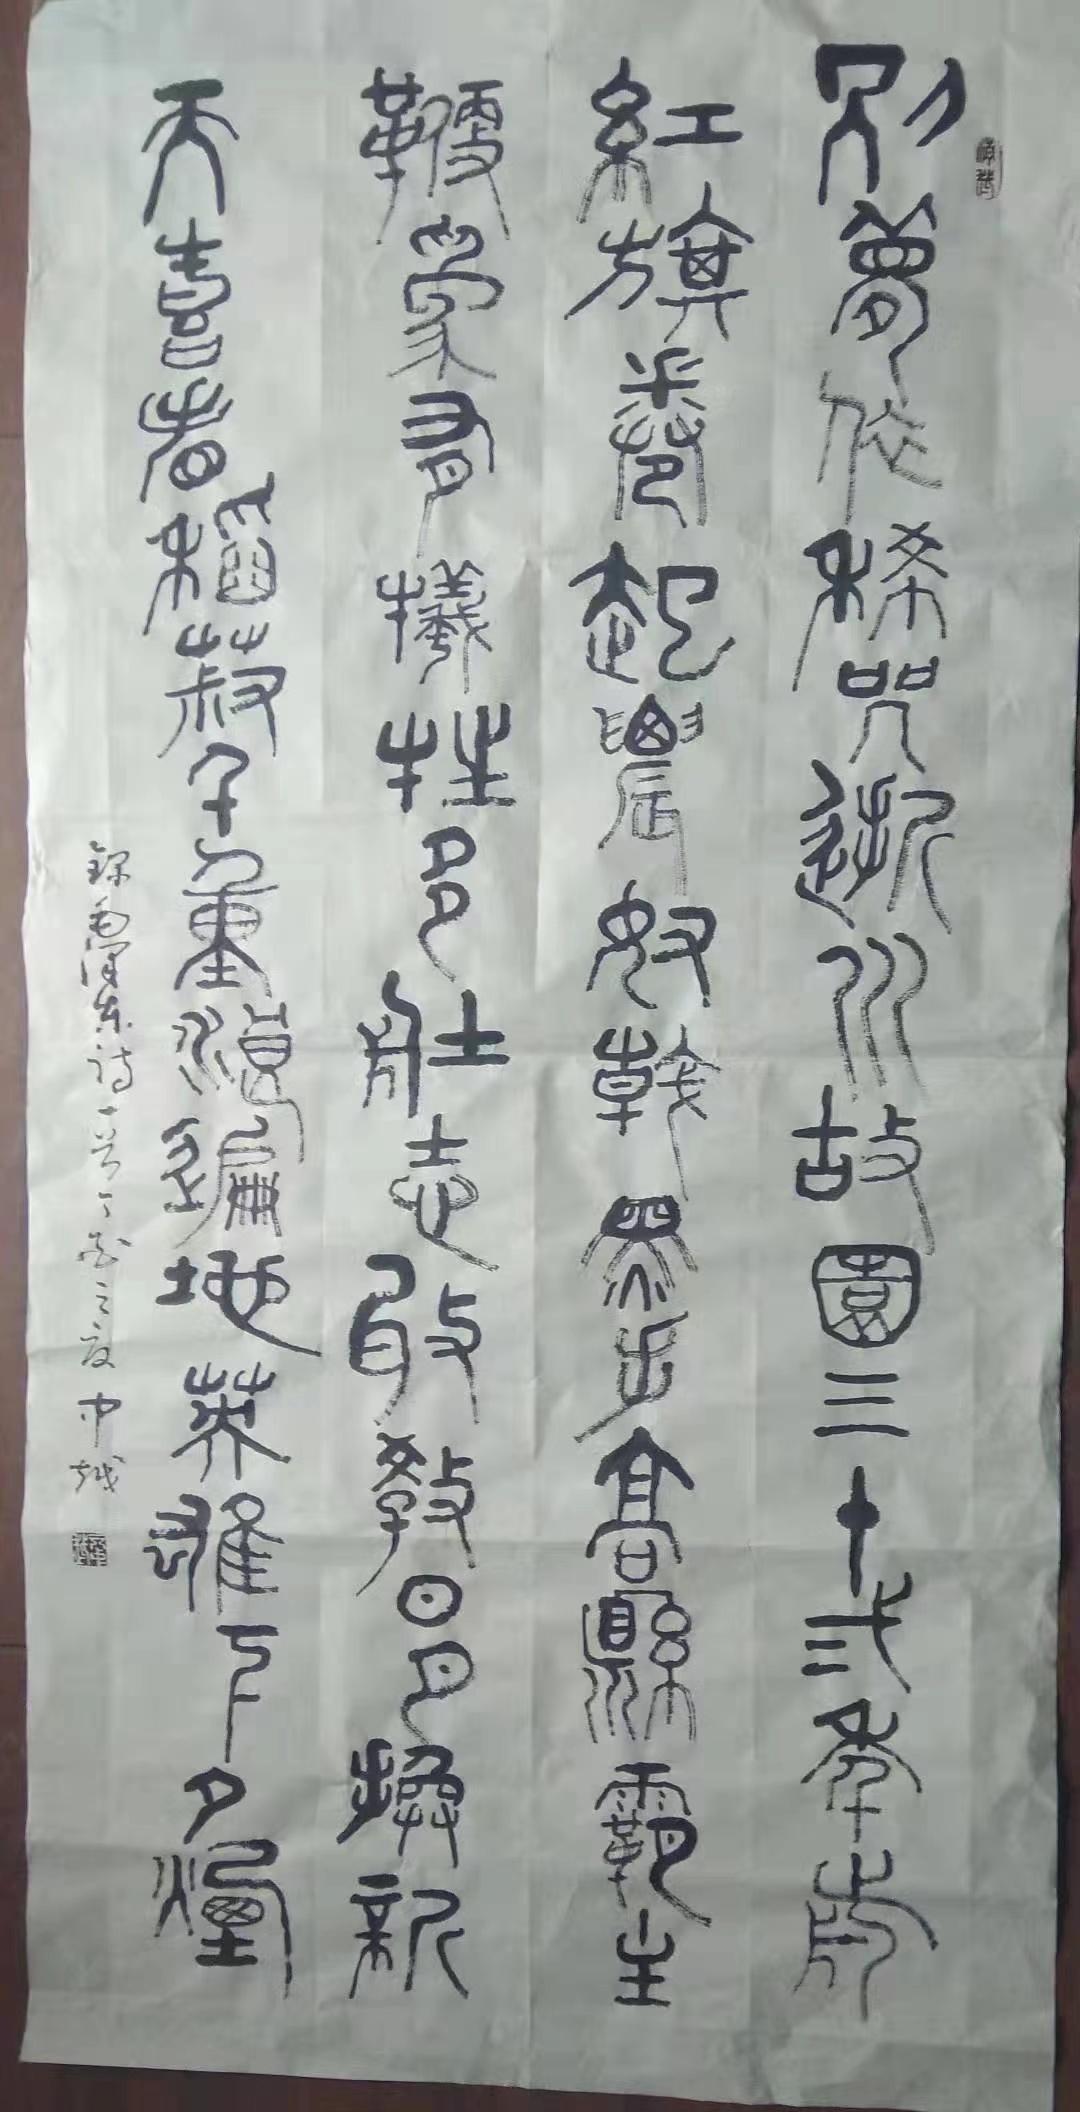 別夢依稀咒逝川故園三十弍年前
紅旗卷起農奴戟黑手高懸霸主
鞭為有犧牲多壯志敢教日月換新
天喜看稻菽千重浪遍地英雄下夕煙
錄毛澤東詩一首丁之夏中越